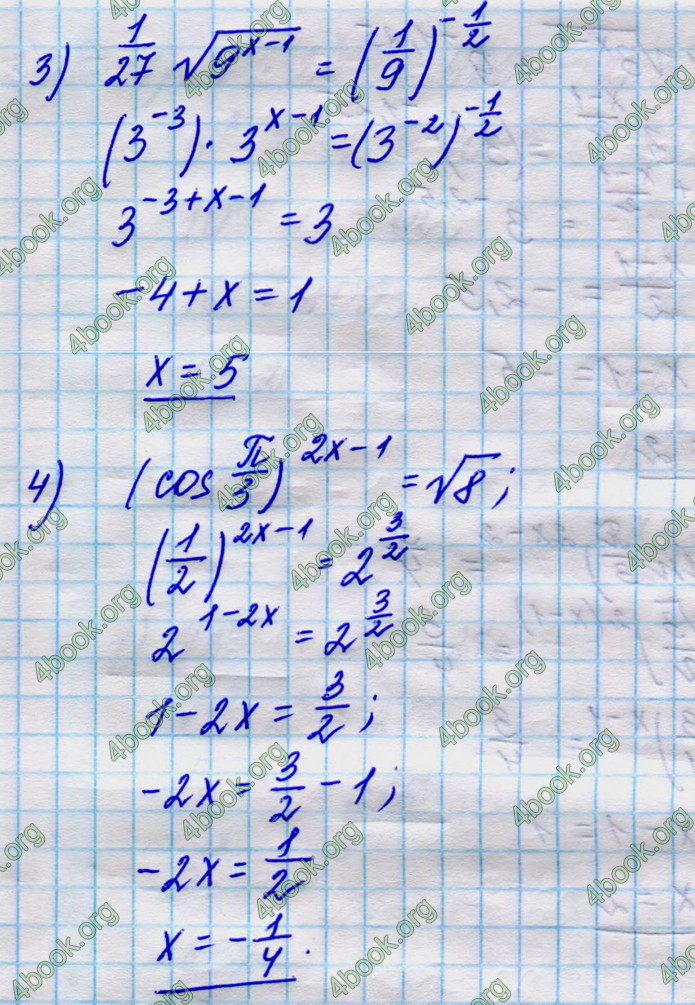 3) 1/27 √9^(x-1) = (1/9)^(-1/2)
(3^(-3)) · 3^(x-1) = (3^(-2))^(-1/2)
3^(-3+x-1) = 3
-4 + x = 1
x = 5
4) (cos π/3)^(2x-1) = √8;
(1/2)^(2x-1) = 2^(3/2)
2^(1-2x) = 2^(3/2)
1 - 2x = 3/2;
-2x = 3/2 - 1;
-2x = 1/2
x = -1/4.
4book.org